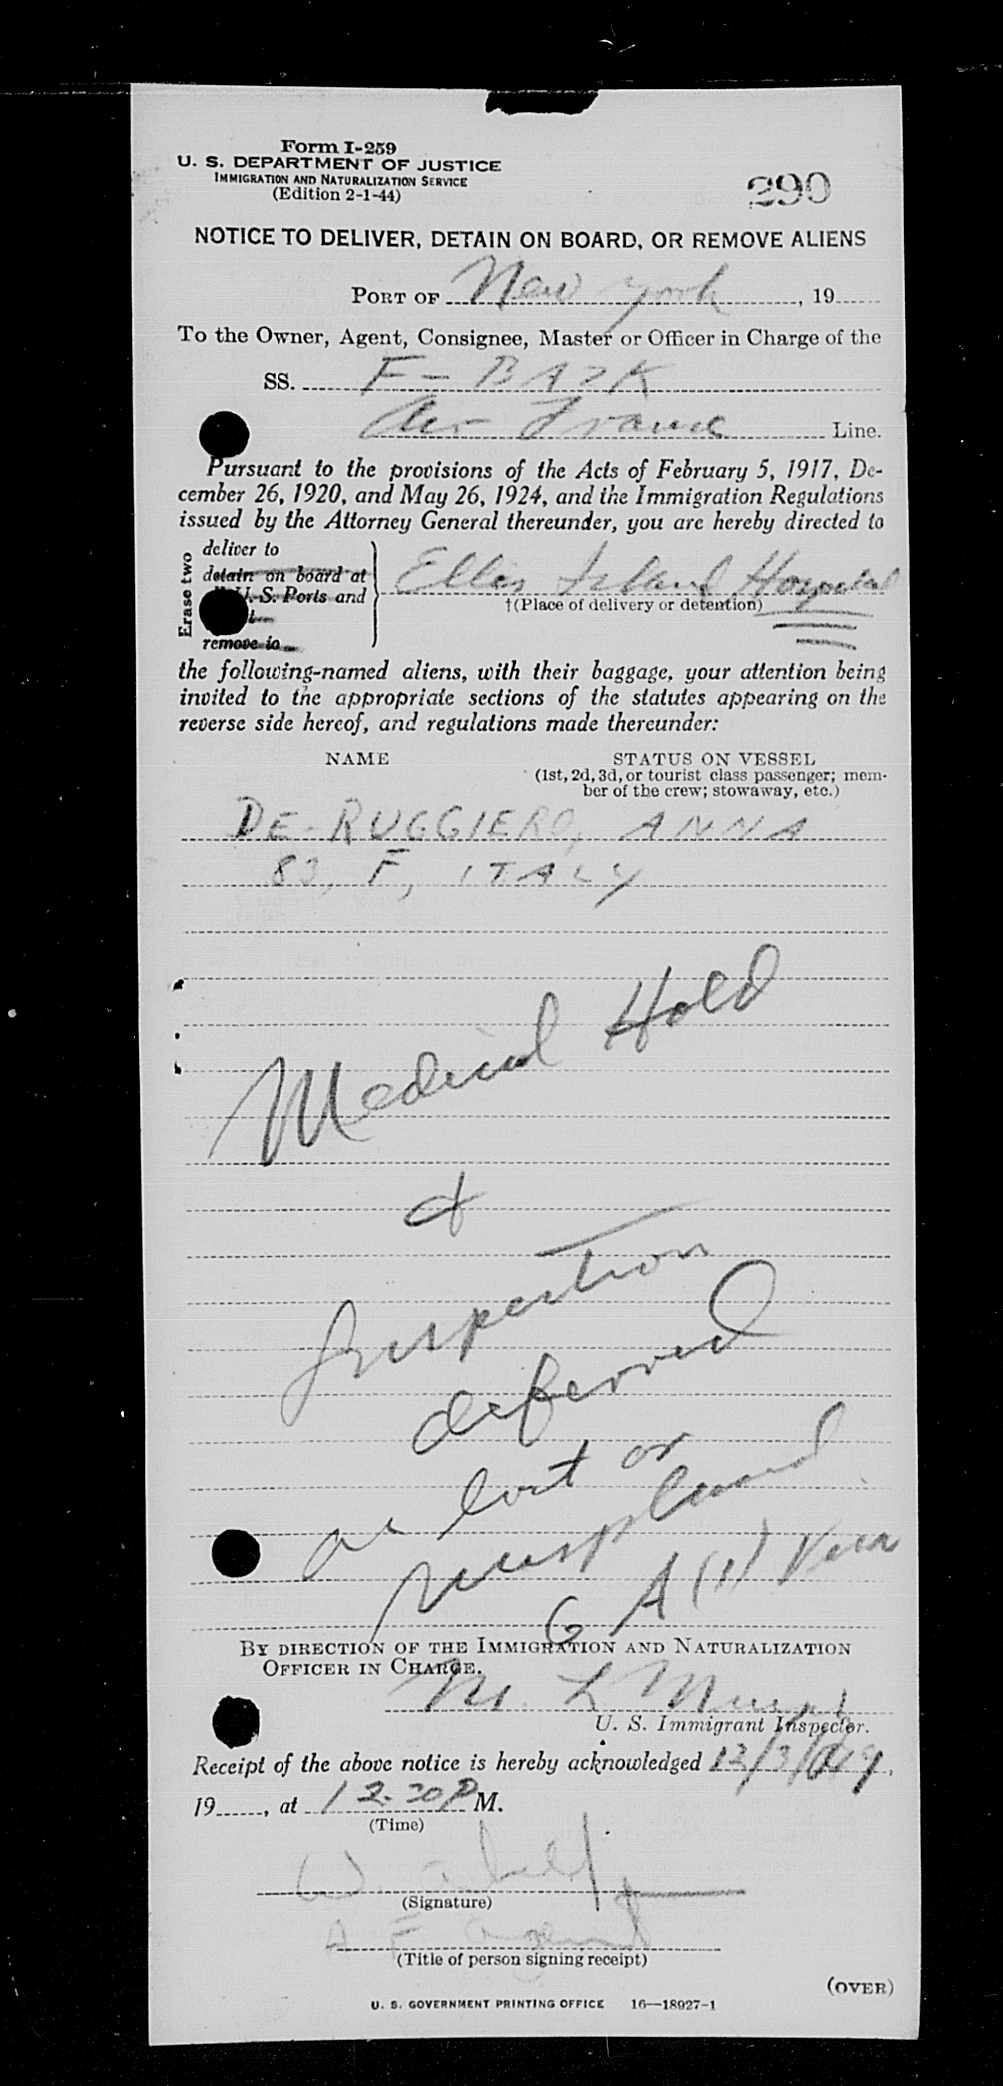 Form I-259
U. S. DEPARTMENT OF JUSTICE
IMMIGRATION AND NATURALIZATION SERVICE
(Edition 2-1-44)
290
NOTICE TO DELIVER, DETAIN ON BOARD, OR REMOVE ALIENS
PORT OF New York, 19
To the Owner, Agent, Consignee, Master or Officer in Charge of the
SS. F-BAZK
Air France Line.
Pursuant to the provisions of the Acts of February 5, 1917, De-
cember 26, 1920, and May 26, 1924, and the Immigration Regulations
issued by the Attorney General thereunder, you are hereby directed to
Erase two
deliver to
detain on board at
U. S. Ports and
remove to
Ellis Island Hospital
†(Place of delivery or detention)
the following-named aliens, with their baggage, your attention being
invited to the appropriate sections of the statutes appearing on the
reverse side hereof, and regulations made thereunder:
NAME STATUS ON VESSEL
(1st, 2d, 3d, or tourist class passenger; mem-
ber of the crew; stowaway, etc.)
DE-RUGGIERO, ANNA
83, F, ITALY
Medical Hold
&
Inspection
deferred
as lost or
misplaced
6 A (1) Visa
BY DIRECTION OF THE IMMIGRATION AND NATURALIZATION
OFFICER IN CHARGE.
M. L
U. S. Immigrant Inspector.
Receipt of the above notice is hereby acknowledged 12/3/49,
19, at 12.30 P M.
(Time)
W.
(Signature)
A F Agent
(Title of person signing receipt)
(OVER)
U. S. GOVERNMENT PRINTING OFFICE 16—18927-1